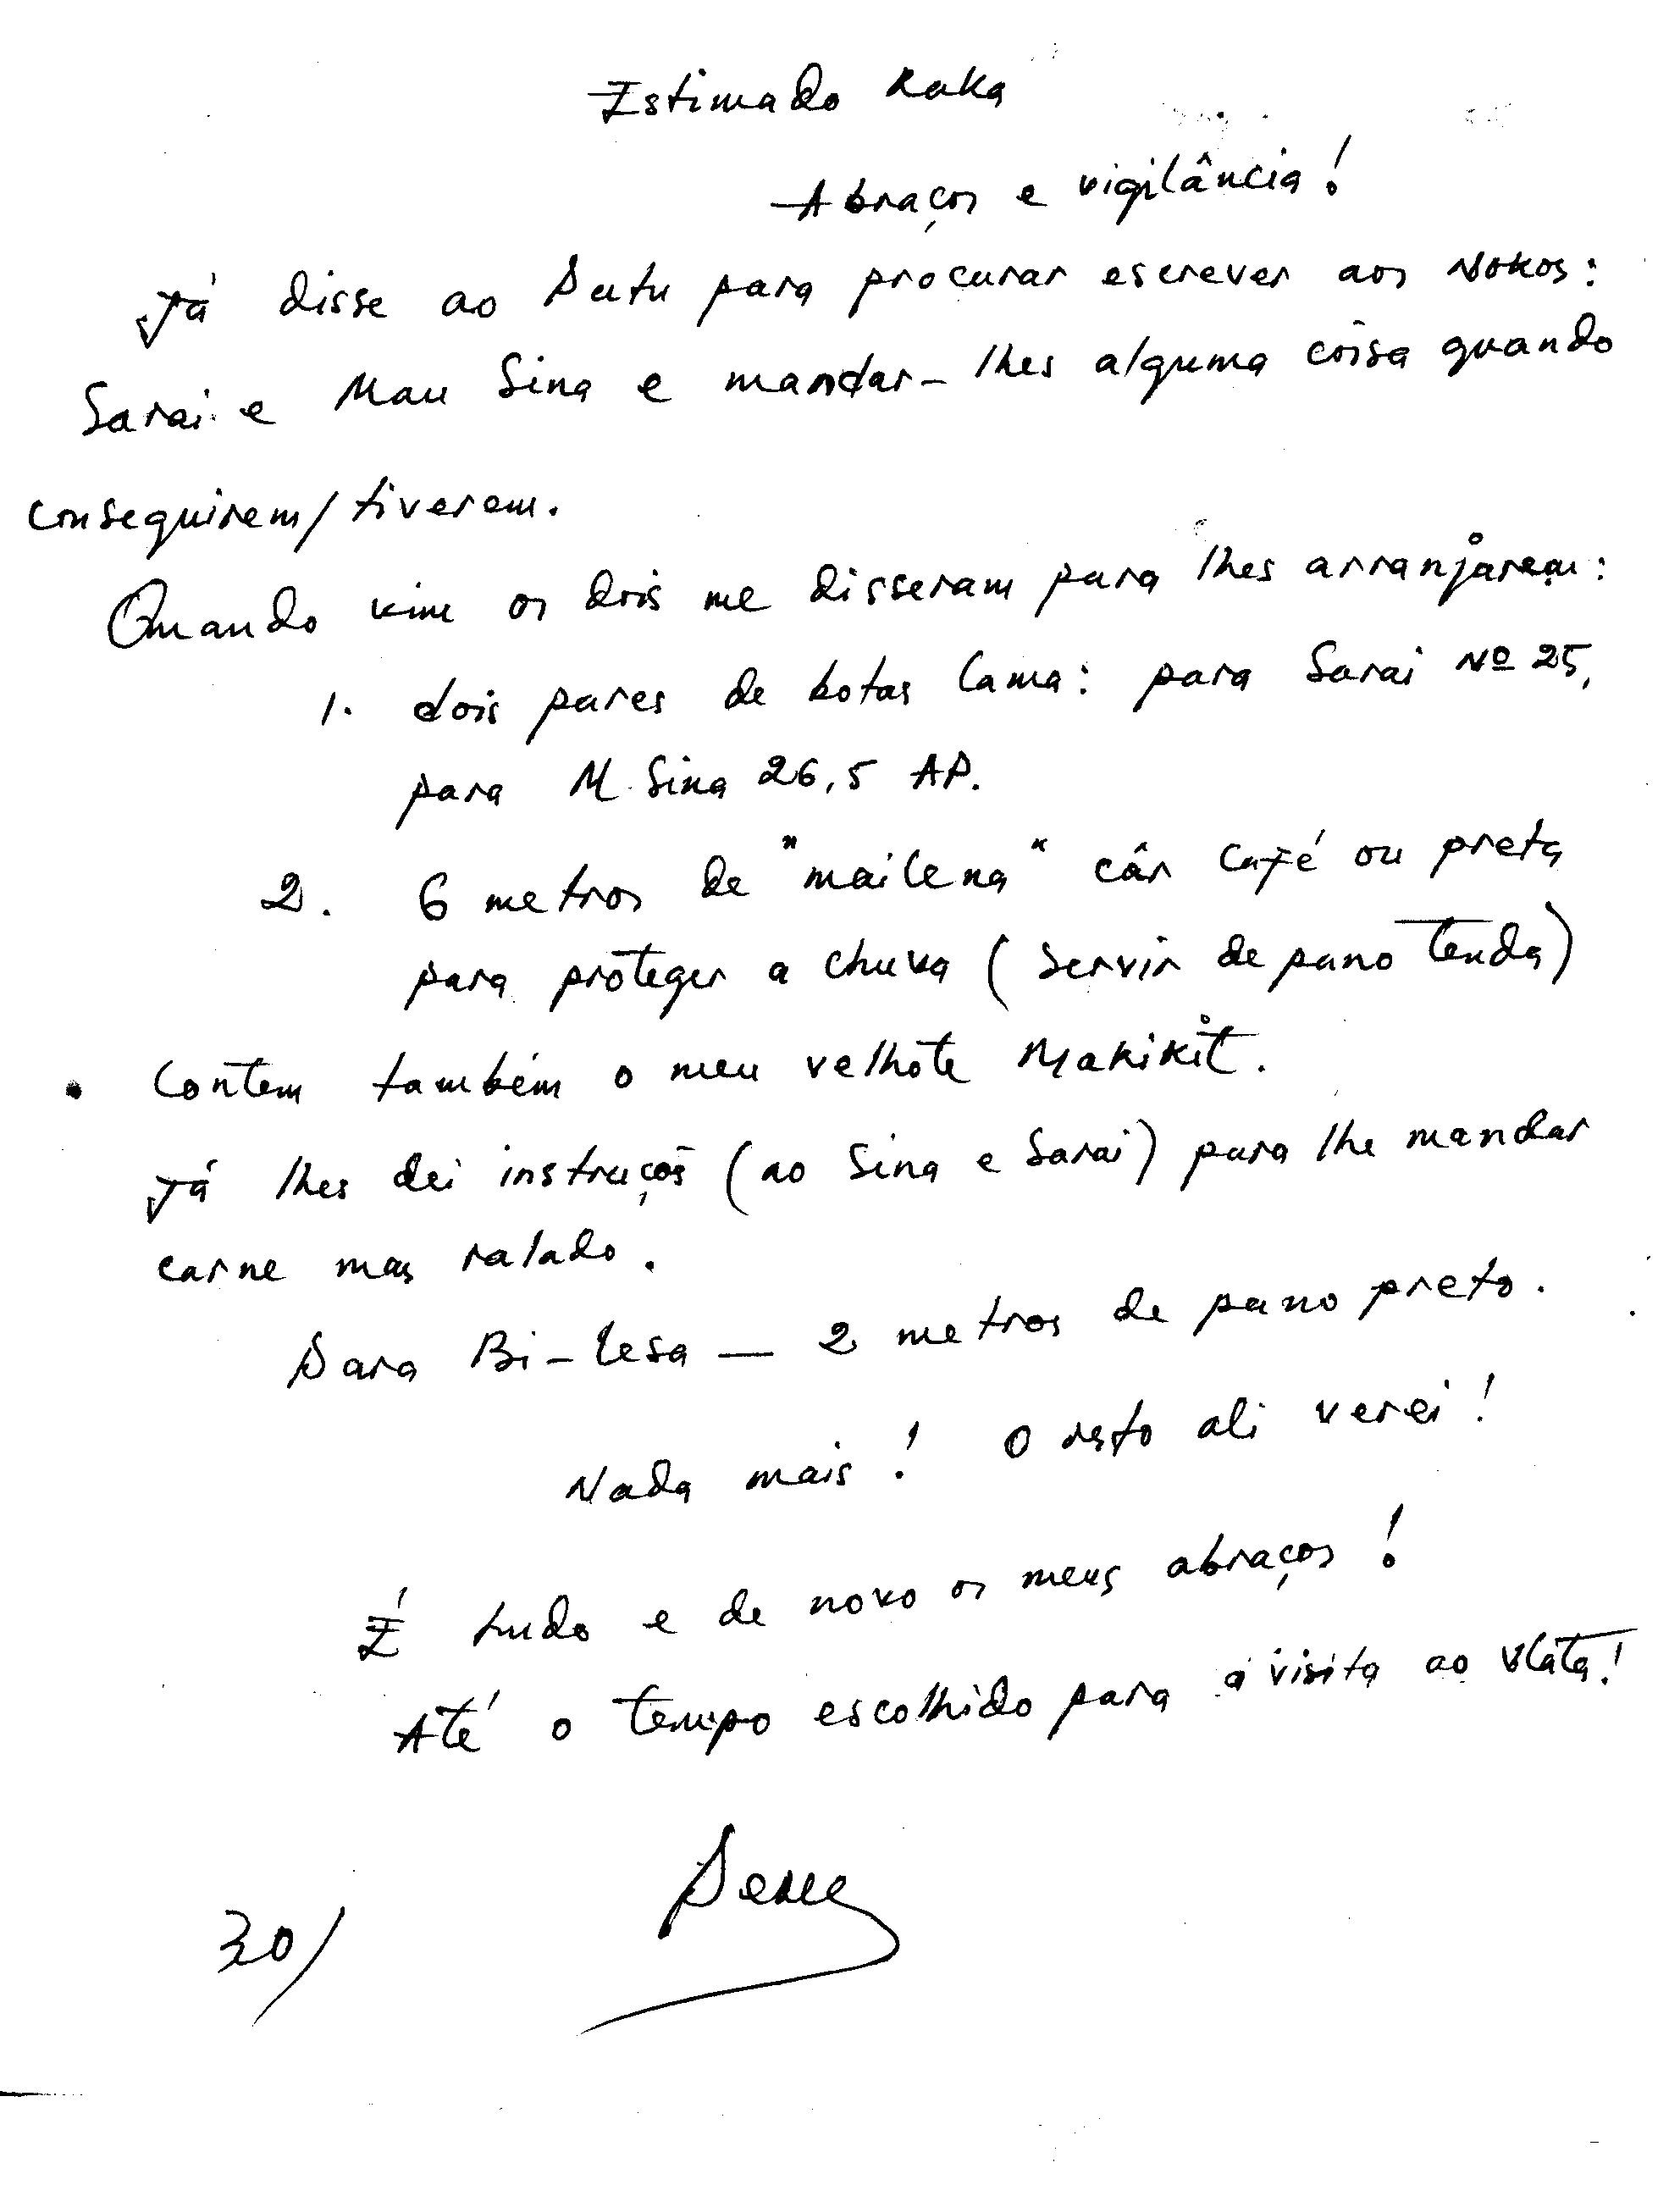 Estimado Kaka
Abraços e vigilância!
Já disse ao Putu para procurar escrever aos Nokos:
Sarai e Mau Sina e mandar-lhes alguma coisa quando
conseguirem/tiverem.
Quando vim os dois me disseram para lhes arranjarem:
1. dois pares de botas lama: para Sarai Nº 25,
para M. Sina 26,5 AP.
2. 6 metros de "mailena" côr café ou preta
para proteger a chuva (servir de pano tenda)
• Contem também o meu velhote Makikit.
Já lhes dei instruçõs (ao Sina e Sarai) para lhe mandar
carne mas ralado.
Para Bi-Lesa — 2 metros de pano preto.
Nada mais! O resto ali verei!
É tudo e de novo os meus abraços!
Até o tempo escolhido para a visita ao Ulata!
30/